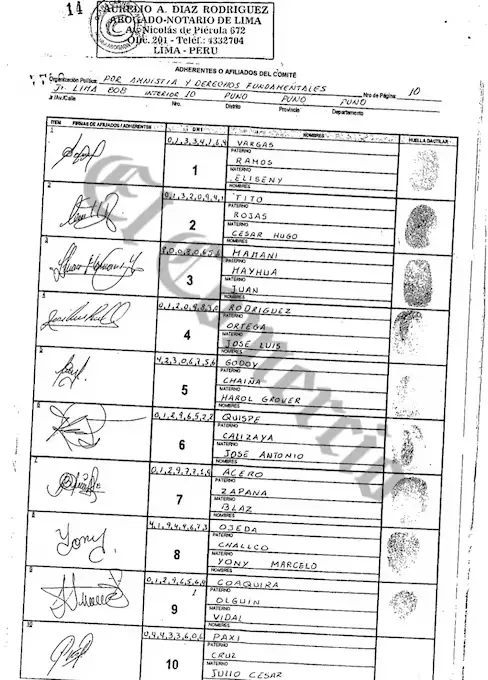 14
AURELIO A. DIAZ RODRIGUEZ
ABOGADO-NOTARIO DE LIMA
Av. Nicolás de Piérola 672
Ofic. 201 - Teléf.: 4332704
LIMA - PERU
ADHERENTES O AFILIADOS DEL COMITÉ
Organización Política: POR AMNISTIA Y DERECHOS FUNDAMENTALES Nro de Página: 10
Jr. LIMA 808 INTERIOR 10 PUNO PUNO PUNO
Jr./Av./Calle Nro. Distrito Provincia Departamento
ITEM FIRMAS DE AFILIADOS / ADHERENTES DNI NOMBRES HUELLA DACTILAR
1 VARGAS
PATERNO
1 RAMOS
MATERNO
ELISENY
NOMBRES
2 0,1,3,2,0,9,4,1 TITO
PATERNO
2 ROJAS
MATERNO
CESAR HUGO
NOMBRES
MAMANI
PATERNO
3 MAYHUA
MATERNO
JUAN
NOMBRES
RODRIGUEZ
PATERNO
4 ORTEGA
MATERNO
JOSE LUIS
NOMBRES
4,2,3,0,6,7,5,6 GODOY
PATERNO
5 CHAIÑA
MATERNO
HAROL GROVER
NOMBRES
6 0,1,2,9,6,5,2,2 QUISPE
PATERNO
6 CALIZAYA
MATERNO
JOSE ANTONIO
NOMBRES
ACERO
PATERNO
7 ZAPANA
MATERNO
BLAZ
NOMBRES
4,1,9,4,4,6,7,3 OJEDA
PATERNO
Yony 8 CHALLCO
MATERNO
YONY MARCELO
NOMBRES
COAQUIRA
PATERNO
9 OLGUIN
MATERNO
VIDAL
NOMBRES
10 0,4,4,3,3,6,0,6 PAXI
PATERNO
10 CRUZ
MATERNO
JULIO CESAR
El Comercio